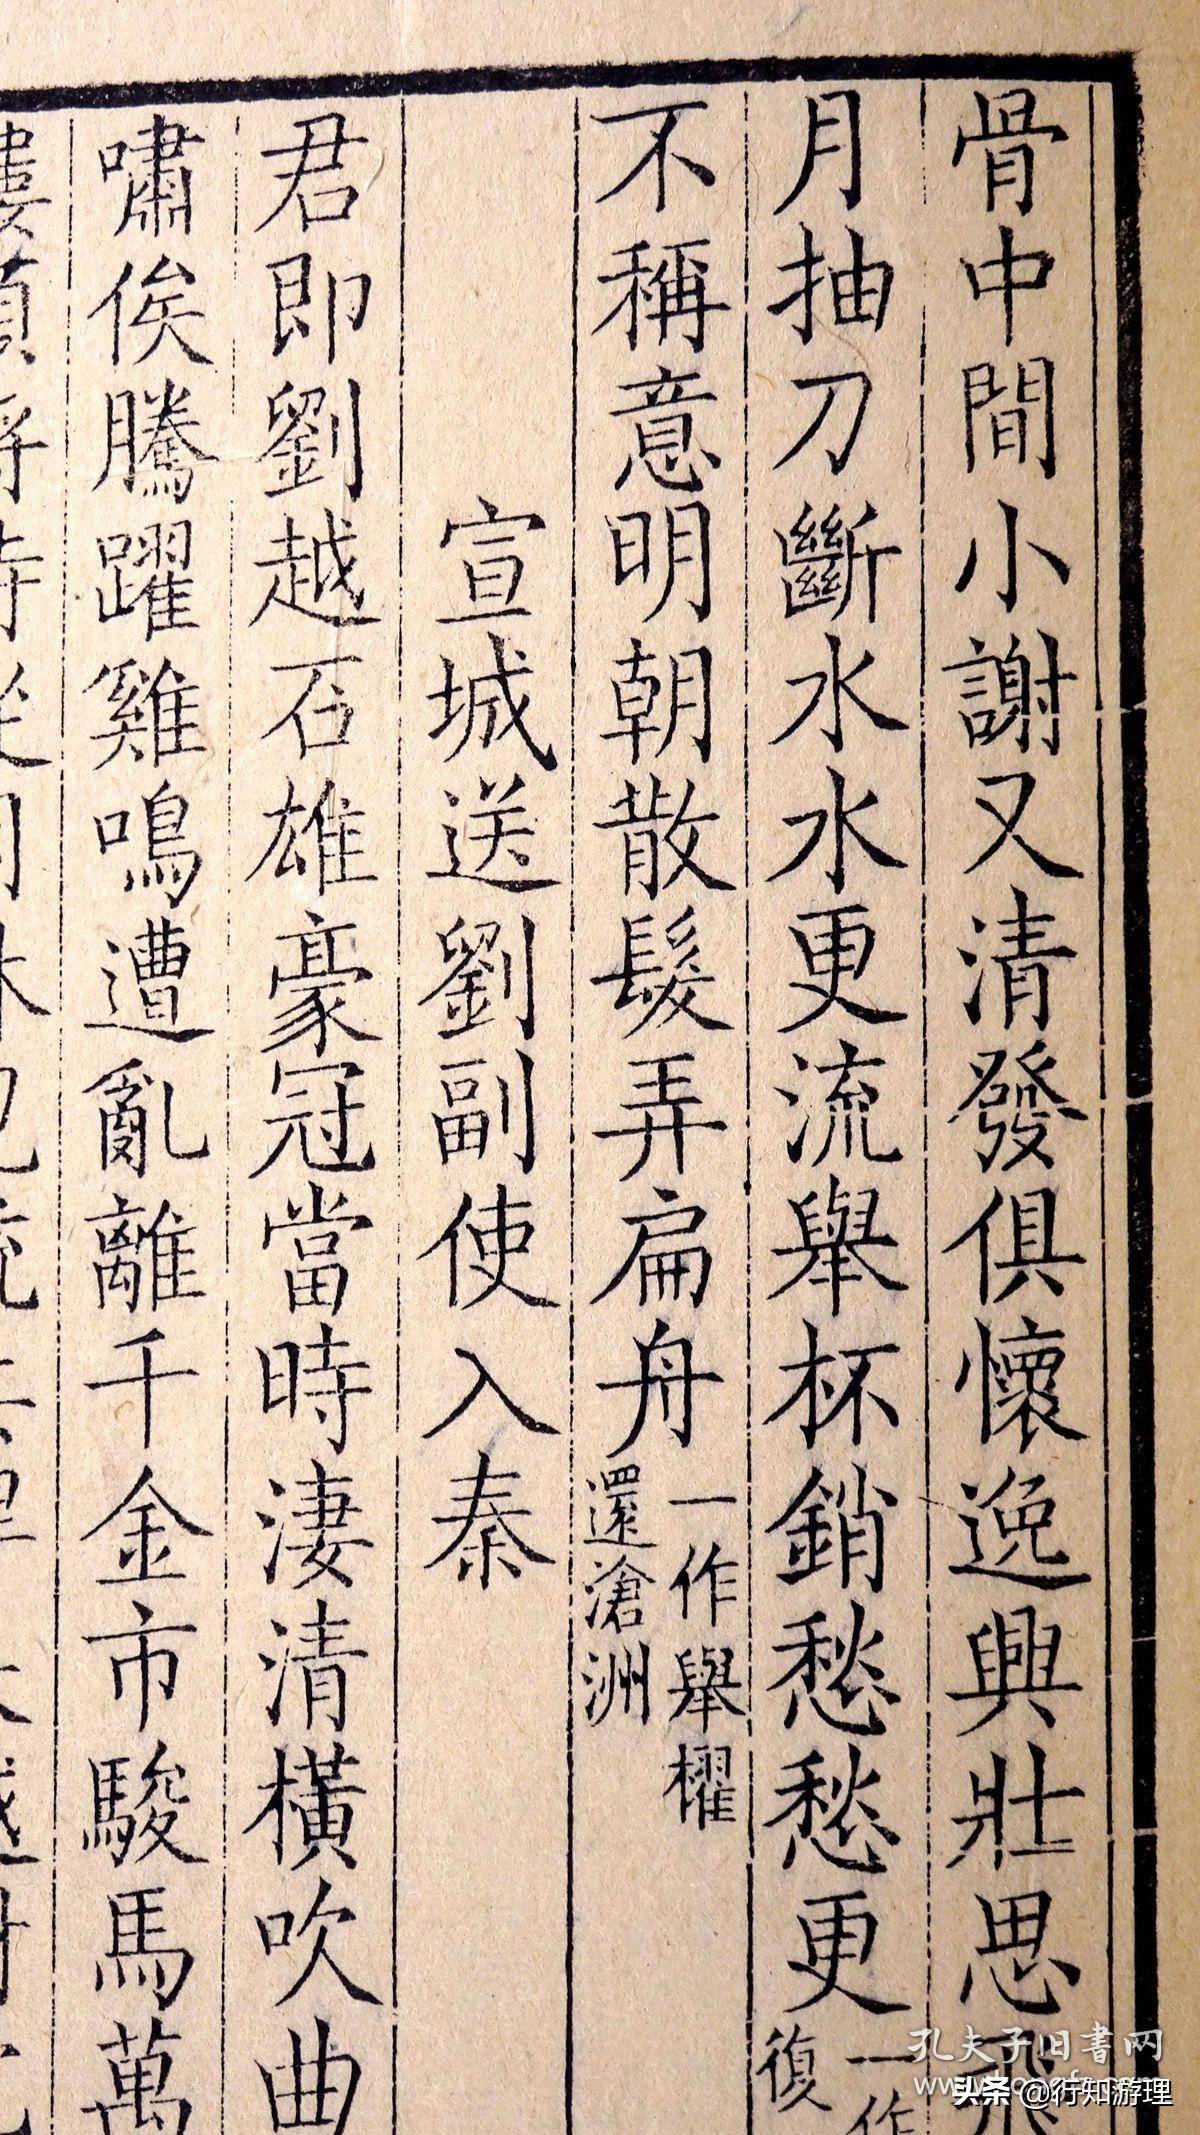 骨中間小謝又清發俱懷逸興壯思飛
月抽刀斷水水更流舉杯銷愁愁更一作復
不稱意明朝散髮弄扁舟一作舉櫂還滄洲
宣城送劉副使入秦
君即劉越石雄豪冠當時淒清橫吹曲
嘯俟騰躍雞鳴遭亂離千金市駿馬萬
孔夫子旧書网
头条 @行知游理